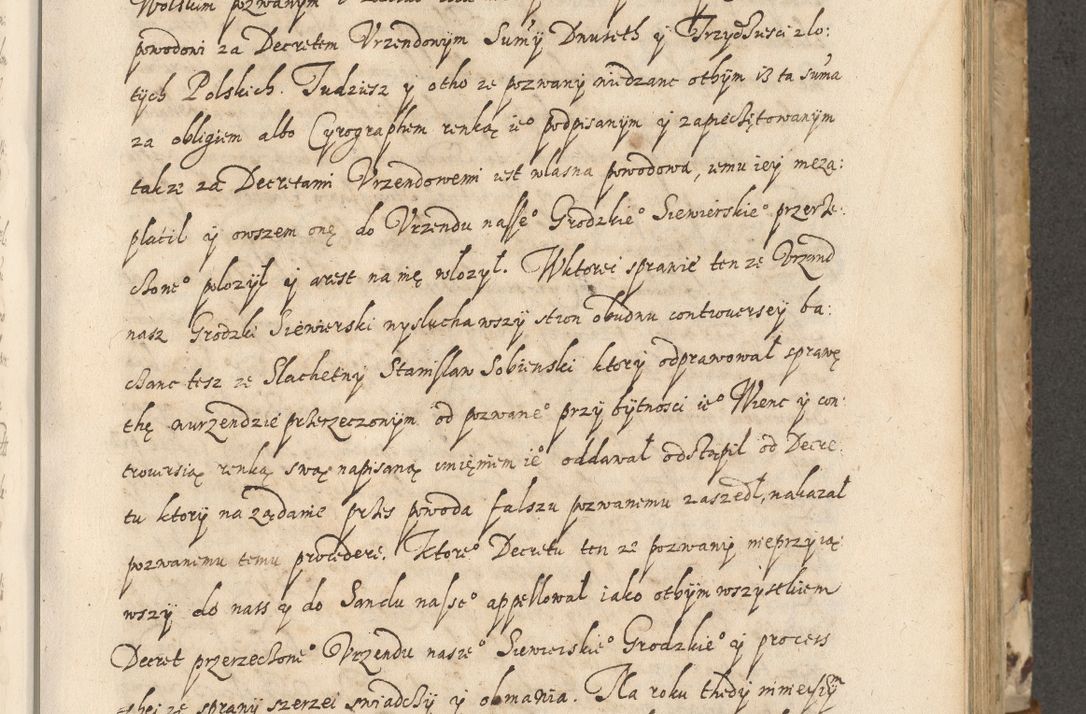 powodowi za Decretem Vrzendowym Sumÿ Dwuseth ÿ Trzÿdziesci zło:
tÿch Polskich. Tudziesz ÿ otho ze pozwanÿ niedzanc othÿm iß ta suma
za obligiem albo Cÿrographem renką ie° podpisanÿm ÿ zapieczętowanÿm
takze za Decretami Vrzendowemi iest własna powodowa, iemu ieÿ nieza:
płacił ÿ owszem onę do Vrzendu nasse° Grodzkie° Siewierskie° przerze:
czone° połozÿł ÿ arest na nię włozÿł. Wktorei sprawie ten ze Vrzand
nasz Grodzki Siewierski wysłuchawszÿ stron obudwu controverseÿ ba:
czanc tesz ze Slachetnÿ Stanisław Sobienski ktorÿ odprawował sprawę
thę wurzendzie przerzeczonÿm od pozwane° przÿ bÿtnosci ie° Wienc ÿ con:
troversią renką swą napisaną imięniem ie° oddawał odstąpił od Decre:
tu ktorÿ na ządanie przes powoda falszu pozwanemu zaszedł, nakazał
pozwanemu temu procedere. Ktore° Decretu ten ze pozwanÿ nieprzÿią:
wszÿ do nass ÿ do Sandu nasse° appellował iako othÿm wszÿstkiem
Decret przerzeczone° Vrzendu nasze° Siewierskie° Grodzkie° ÿ process
ze sprawÿ szerzei swiadczÿ ÿ obmawia. Na roku thedÿ ninieÿszÿm